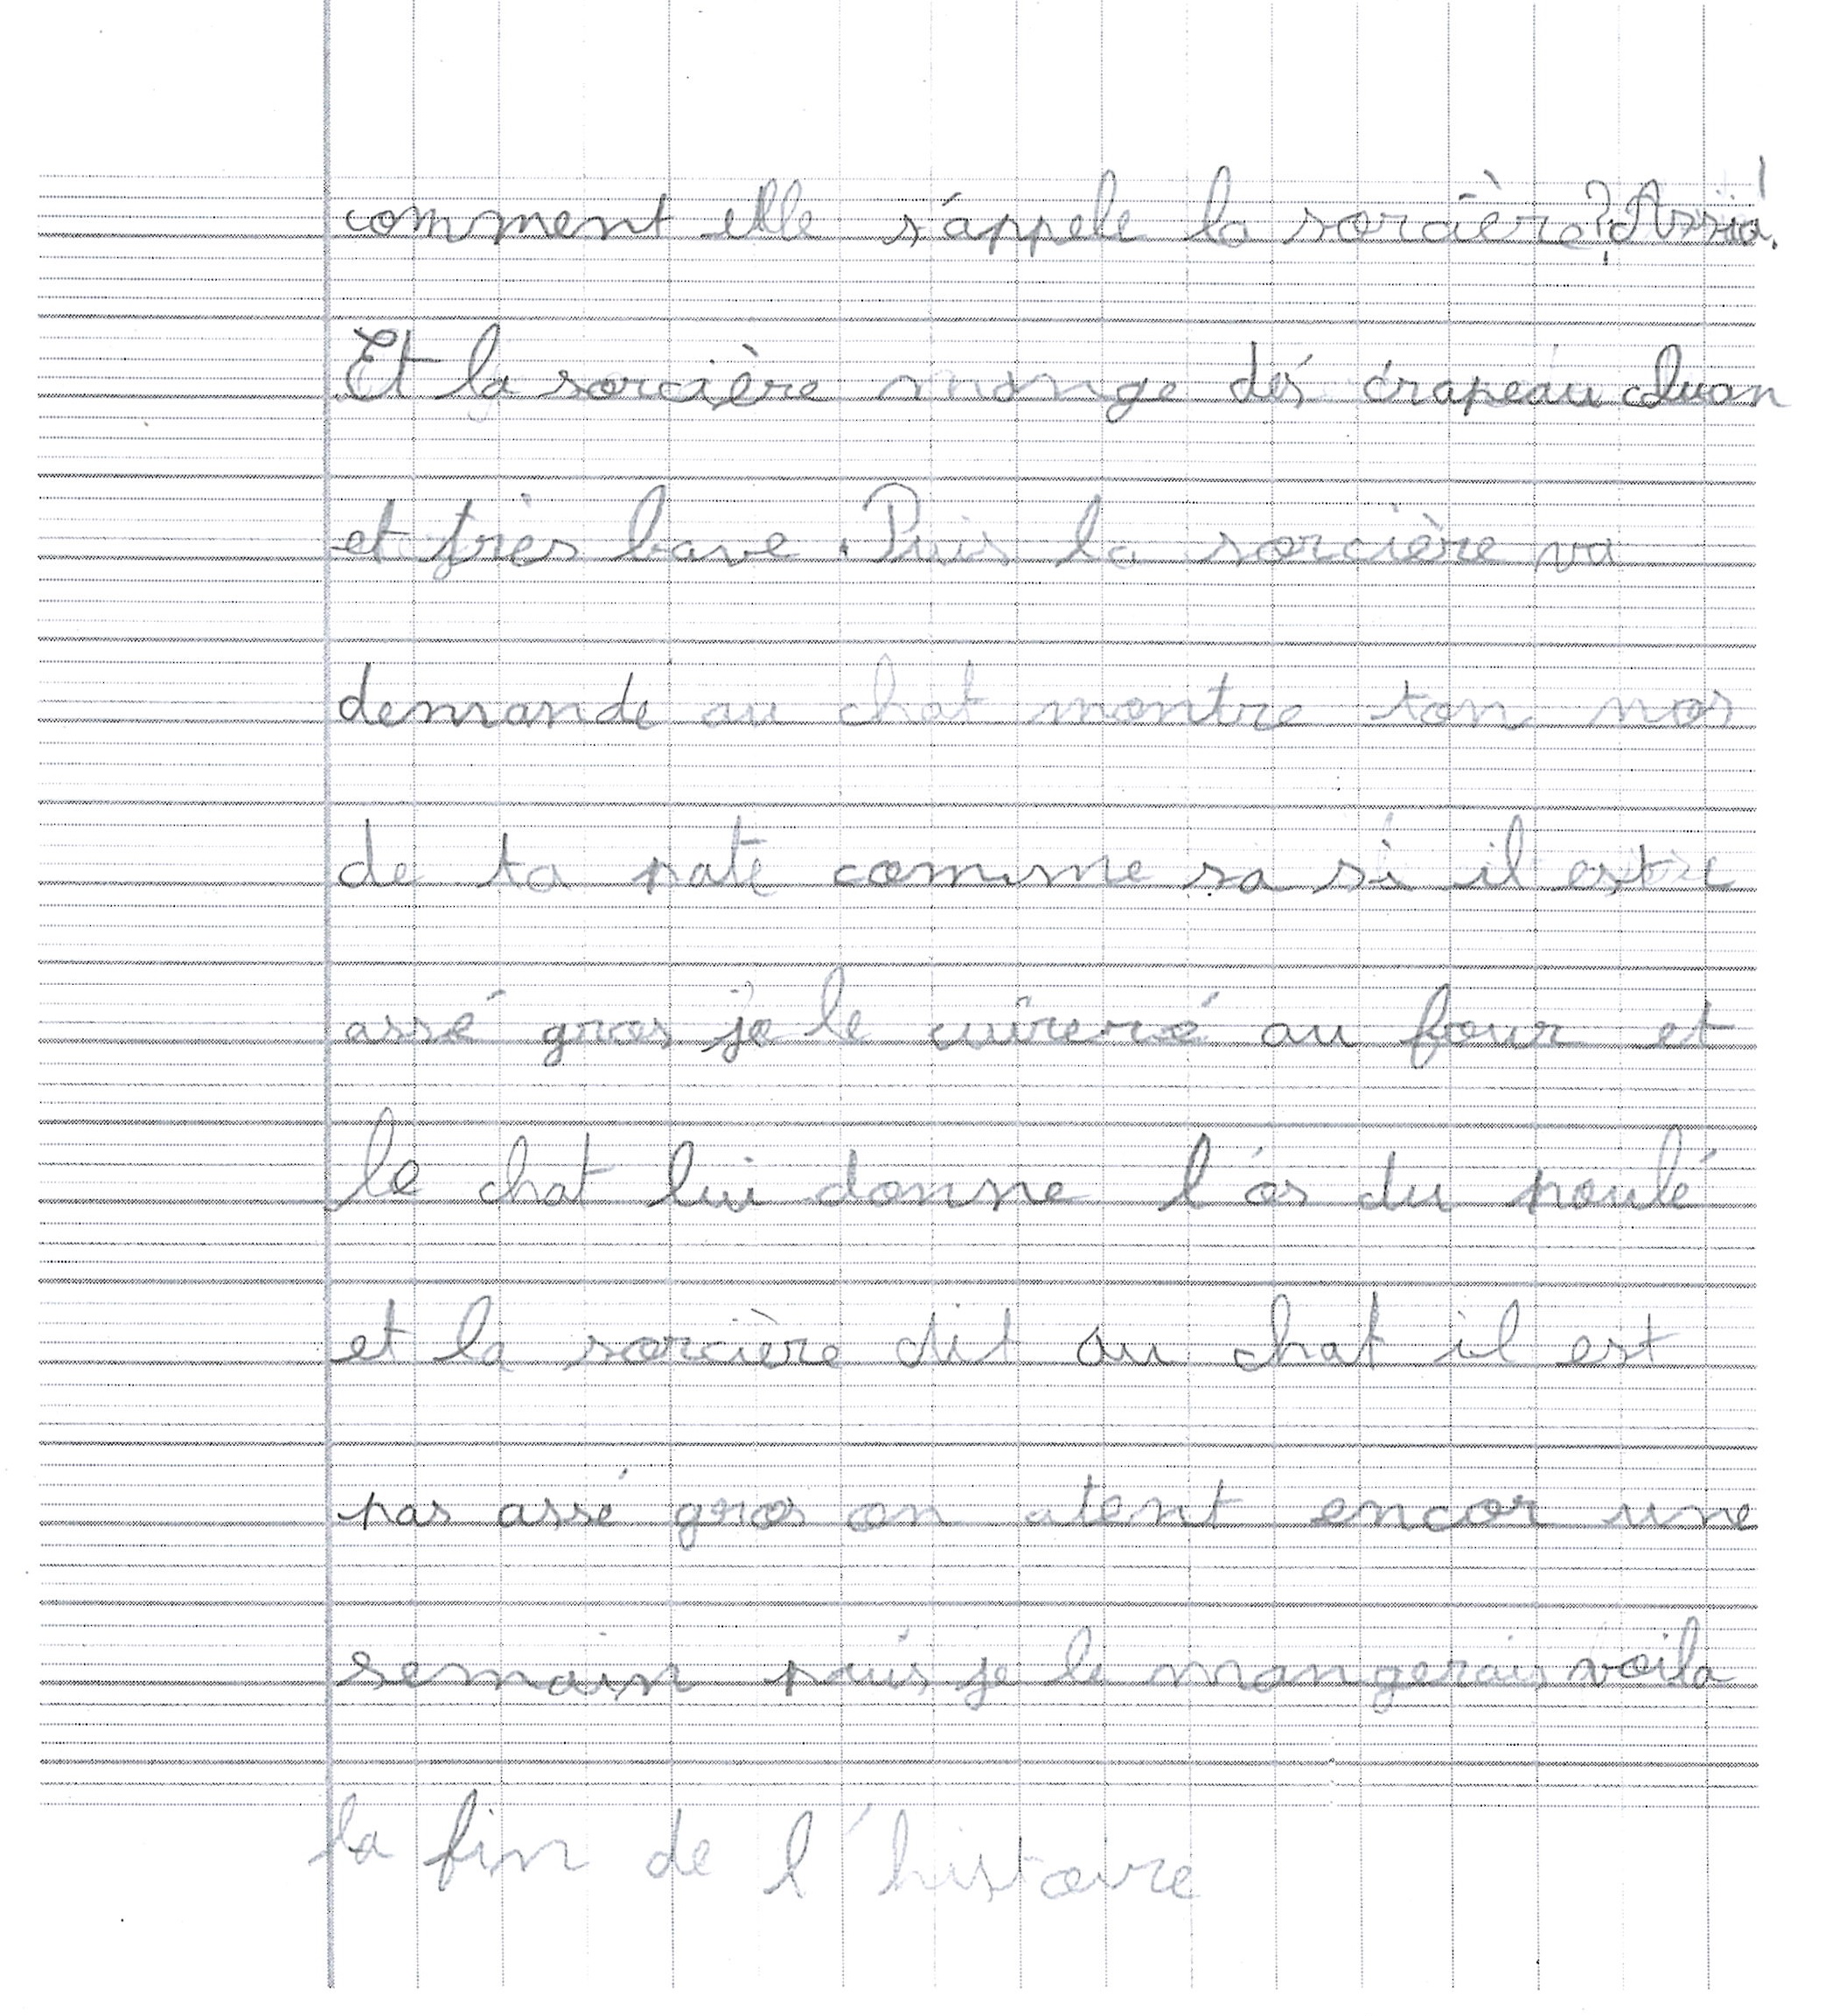 comment elle s'appele la sorcière? Assia!
Et la sorcière mange des crapeau
et très bave. Puis la sorcière va
demande au chat montre ton nos
de ta pate comme sa si il est
assé gros je le cuireré au four et
le chat lui donne l'os du poulé
et la sorcière dit au chat il est
pas assé gros on atent encor une
semain puis je le mangerais voila
la fin de l'histoire